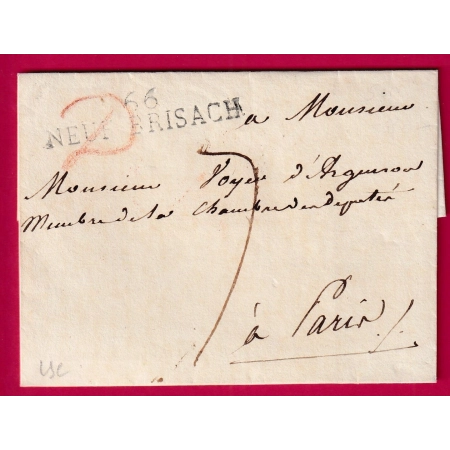 2
66
NEUF BRISACH
a Monsieur
Monsieur Voyer d'Argenson
Membre de la Chambre des députés
7
à Paris
LSC